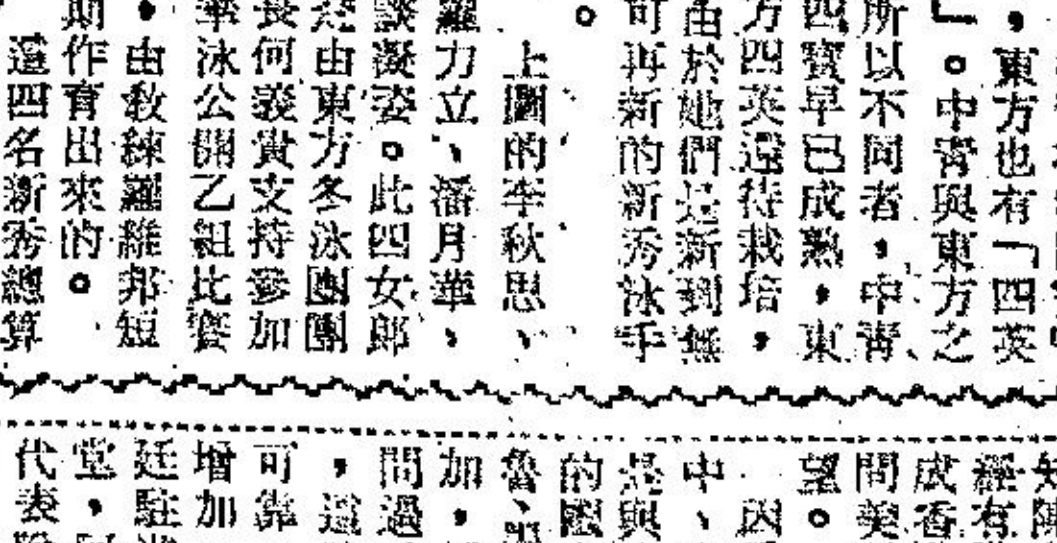 ，東方也有「四英
」。中青與東方之
所以不同者，中青
四寶早已成熟，東
方四英還待栽培，
由於她們是新到無
可再新的新秀泳手
。
上圖的李秋思、
羅力立、潘月華、
談凝姿。此四女郎
是由東方冬泳團團
長何義貴支持參加
華泳公開乙組比賽
，由教練羅維邦短
期作育出來的。
這四名新秀總算
經有
成香
問美
望。
因
中、
是與
的國
魯、
加，
問過
，這
可靠
增加
廷駐
堂，
代表